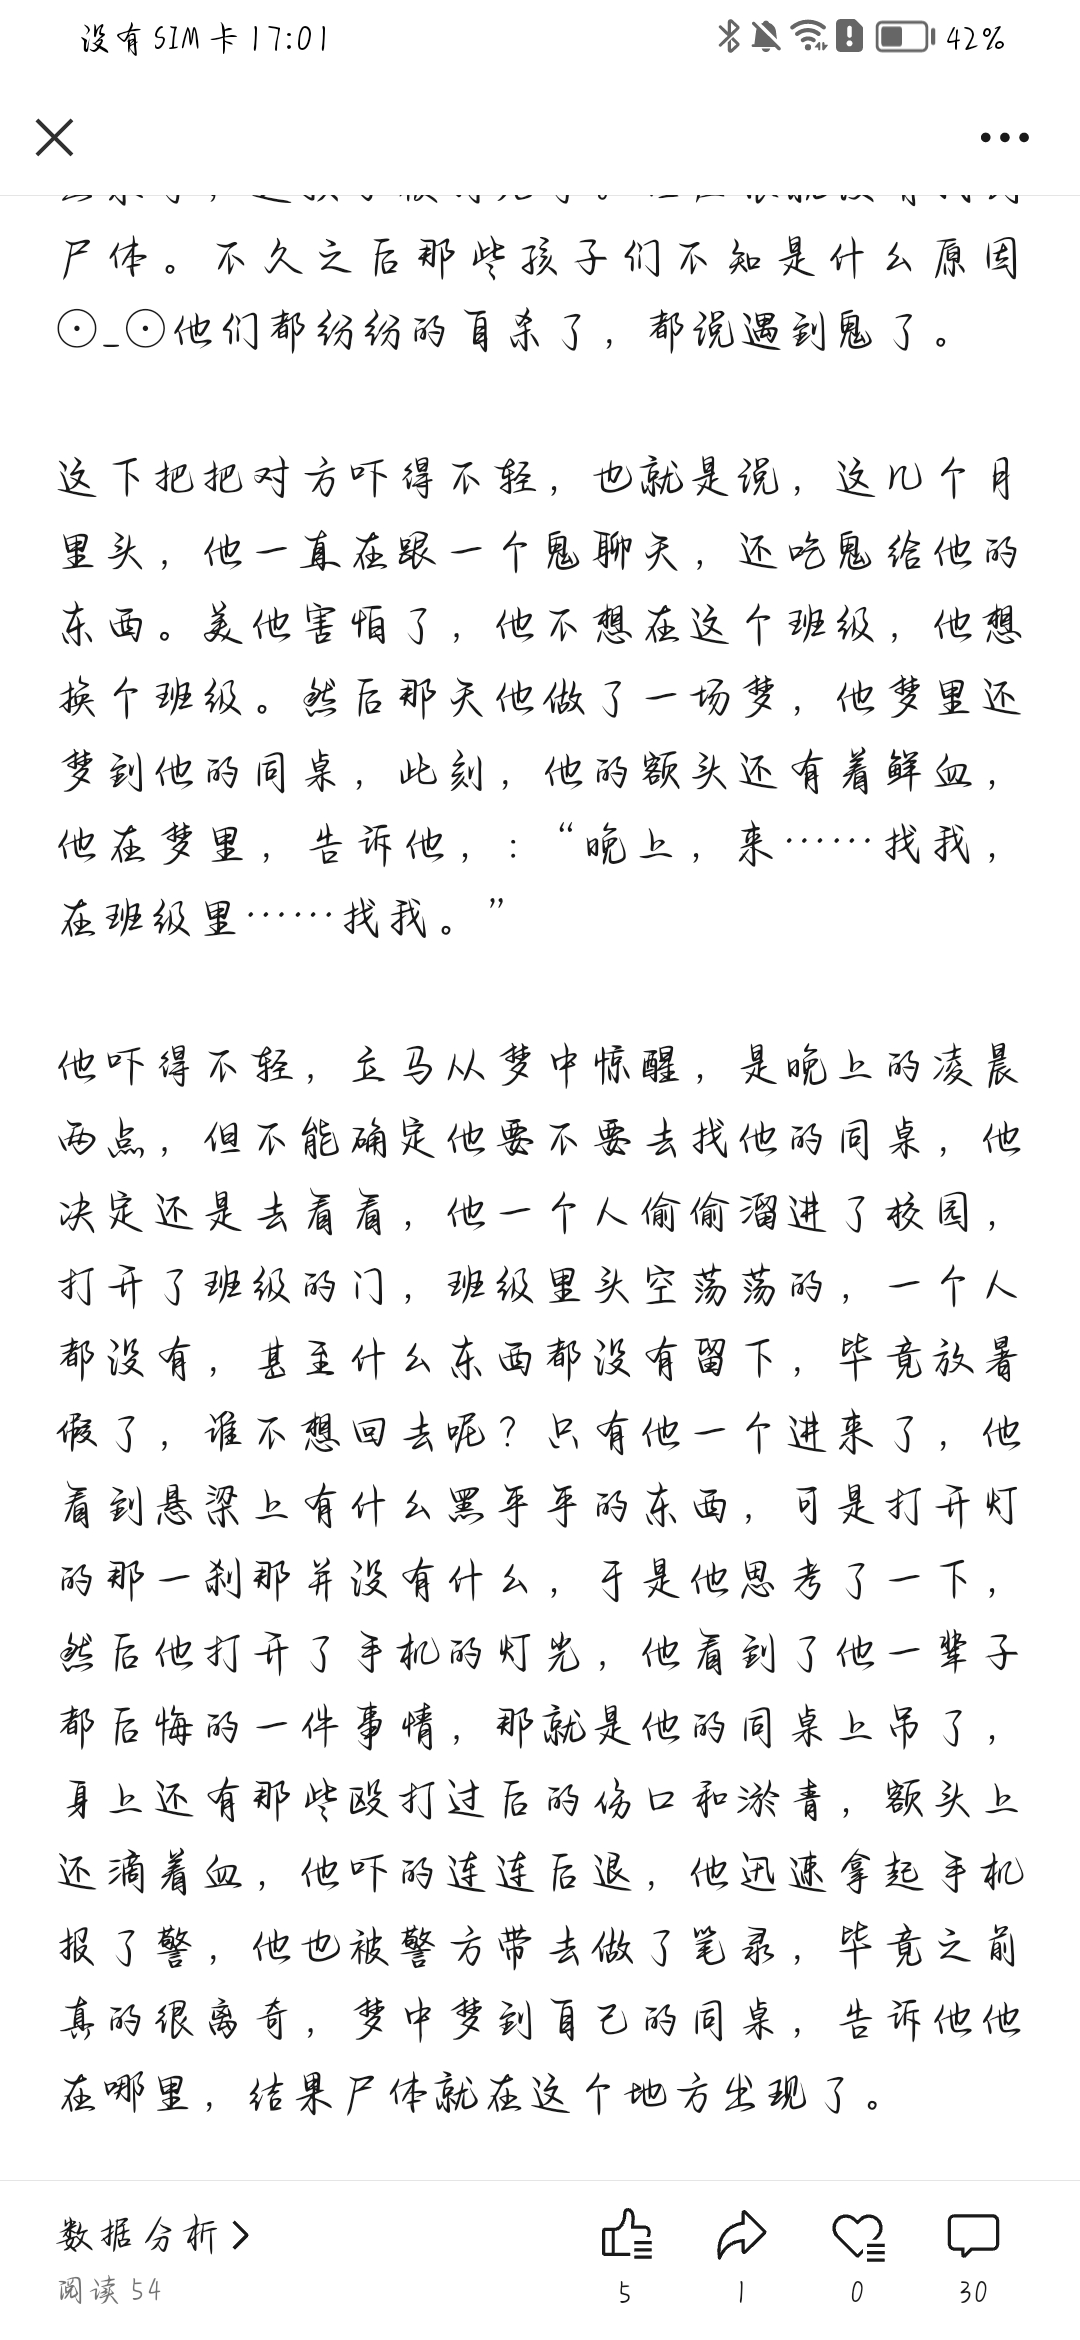 没有SIM卡 17:01
42%
尸体。不久之后那些孩子们不知是什么原因
⊙_⊙他们都纷纷的自杀了，都说遇到鬼了。
这下把把对方吓得不轻，也就是说，这几个月
里头，他一直在跟一个鬼聊天，还吃鬼给他的
东西。美他害怕了，他不想在这个班级，他想
换个班级。然后那天他做了一场梦，他梦里还
梦到他的同桌，此刻，他的额头还有着鲜血，
他在梦里，告诉他，：“晚上，来……找我，
在班级里……找我。”
他吓得不轻，立马从梦中惊醒，是晚上的凌晨
两点，但不能确定他要不要去找他的同桌，他
决定还是去看看，他一个人偷偷溜进了校园，
打开了班级的门，班级里头空荡荡的，一个人
都没有，甚至什么东西都没有留下，毕竟放暑
假了，谁不想回去呢？只有他一个进来了，他
看到悬梁上有什么黑乎乎的东西，可是打开灯
的那一刹那并没有什么，于是他思考了一下，
然后他打开了手机的灯光，他看到了他一辈子
都后悔的一件事情，那就是他的同桌上吊了，
身上还有那些殴打过后的伤口和淤青，额头上
还滴着血，他吓的连连后退，他迅速拿起手机
报了警，他也被警方带去做了笔录，毕竟之前
真的很离奇，梦中梦到自己的同桌，告诉他他
在哪里，结果尸体就在这个地方出现了。
数据分析
阅读 54
5
1
0
30